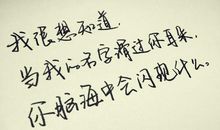 我很想知道.
当我的名字滑过你耳朵.
你脑海中会闪现什么.